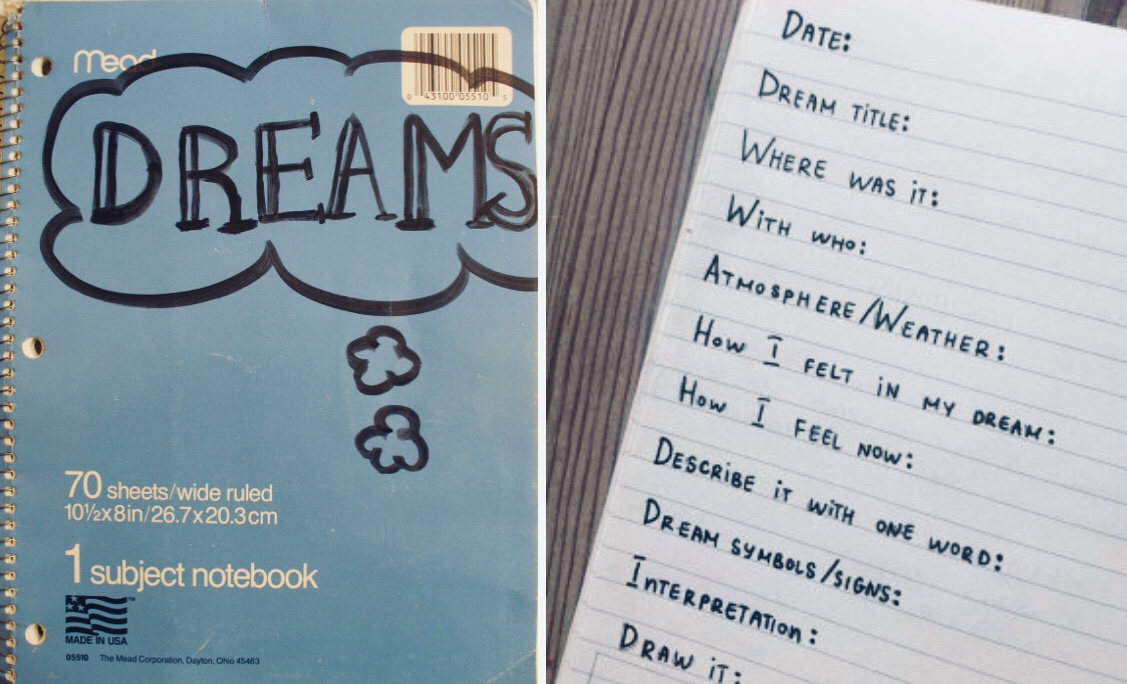 Mead
0 43100 05510 5
DREAMS
70 sheets/wide ruled
10½x8in/26.7x20.3cm
1 subject notebook
TM
MADE IN USA
05510 The Mead Corporation, Dayton, Ohio 45463
DATE:
DREAM TITLE:
WHERE WAS iT:
WiTH WHO:
ATMOSPHERE/WEATHER:
HOW I FELT iN MY DREAM:
HOW I FEEL NOW:
DESCRiBE iT WiTH ONE WORD:
DREAM SYMBOLS/SiGNS:
INTERPRETATiON:
DRAW iT: